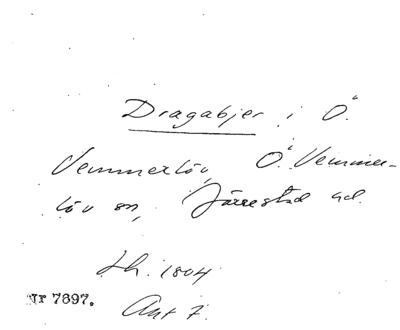 Dragabjer i Ö.
Vemmerlöv, Ö. Vemmer-
löv sn, Järrestad hd.
Lh. 1804
Nr 7697.
Ant 7.